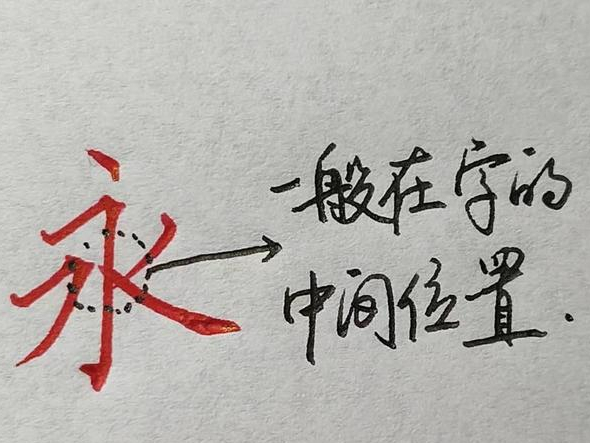 永
一般在字的
中间位置.